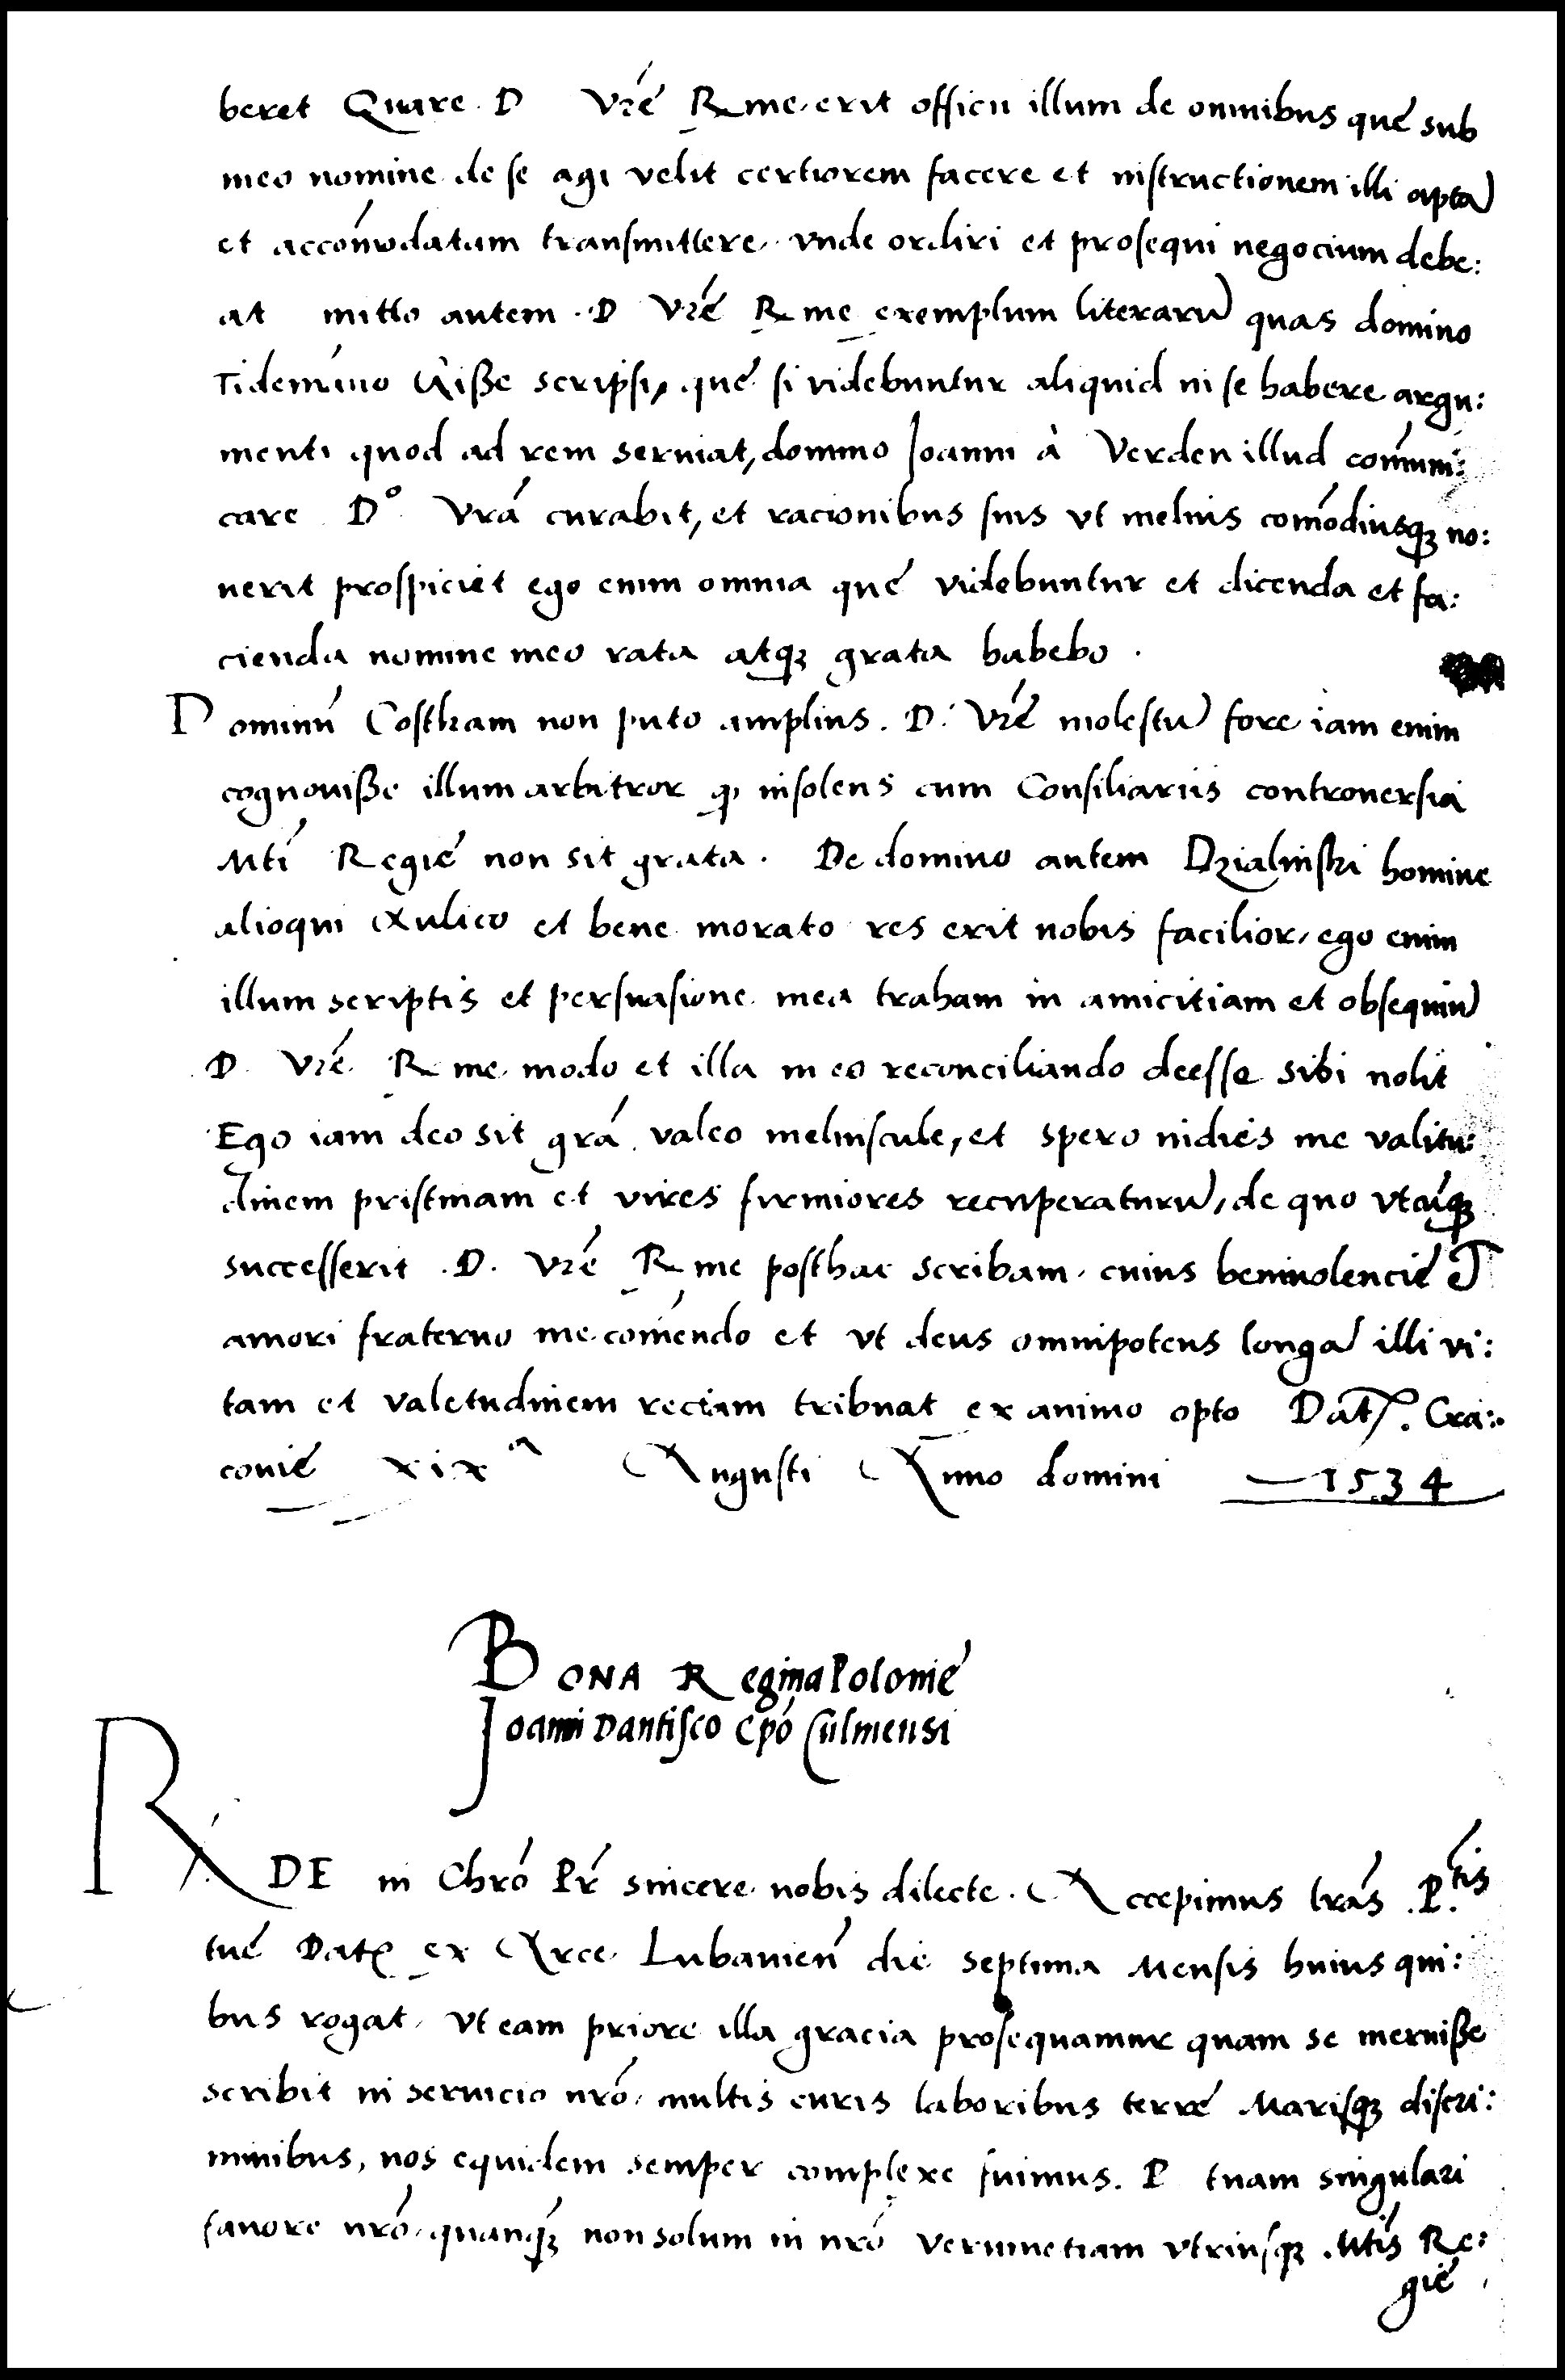 beret Quare D Vrę́ Rme erit officii illum de omnibus quę sub
meo nomine de se agi velit certiorem facere et instructionem illi aptā
et accōmodatam transmittere, vnde ordiri et prosequi negocium debe:
at mitto autem .D Vrę́ Rme exemplum literarū quas domino
Tidemāno Gisße scripsi, quę si videbuntur aliquid in se habere argu:
menti quod ad rem seruiat, domino Joanni à Verden illud cōmuni:
care Dº Vrā curabit, et racionibus suis vt melius cōmodiusq; no:
uerit prospiciet ego enim omnia quę videbuntur et dicenda et fa:
cienda nomine meo rata atq; grata habebo .
Dominū Costkam non puto amplius . D. Vrę́ molestū fore iam enim
cognouiße illum arbitror q insolens cum Consiliariis controuersia
Mti Regię non sit grata . De domino autem Dzialinski homine
alioqui Aulico et bene morato res erit nobis facilior, ego enim
illum scriptis et persuasione mea traham in amicitiam et obsequiū
D. Vrę́ Rme modo et illa in eo reconciliando deesse sibi nolit
Ego iam deo sit grā valeo meliuscule, et spero indies me valitu:
dinem pristinam et vires firmiores recuperaturū, de quo vtcūq;
successerit .D. Vrę́ Rme posthac scribam, cuius beniuolencię et
amori fraterno me cōmendo et vt deus omnipotens longā illi vi:
tam et valetudinem rectam tribuat ex animo opto Dat. Cra:
couię xixa Augusti Anno domini 1534
BONA Regina Polonię
Joanni Dantisco Epō Culmensi
RDE in Chrō Pr̄ sincere nobis dilecte. Accepimus lrās .P.tis
tuę Dat ex Arce Lubauień die septima Mensis huius qui:
bus rogat, vt eam priore illa gracia prosequamur quam se meruiße
scribit in seruicio nrō, multis curis laboribus terrę Marisq; discri:
minibus, nos equidem semper complexe fuimus. P tuam singulari
fauore nrō, quanq; non solum in nrō verumetiam vtriusq; Mtis Re:
gię